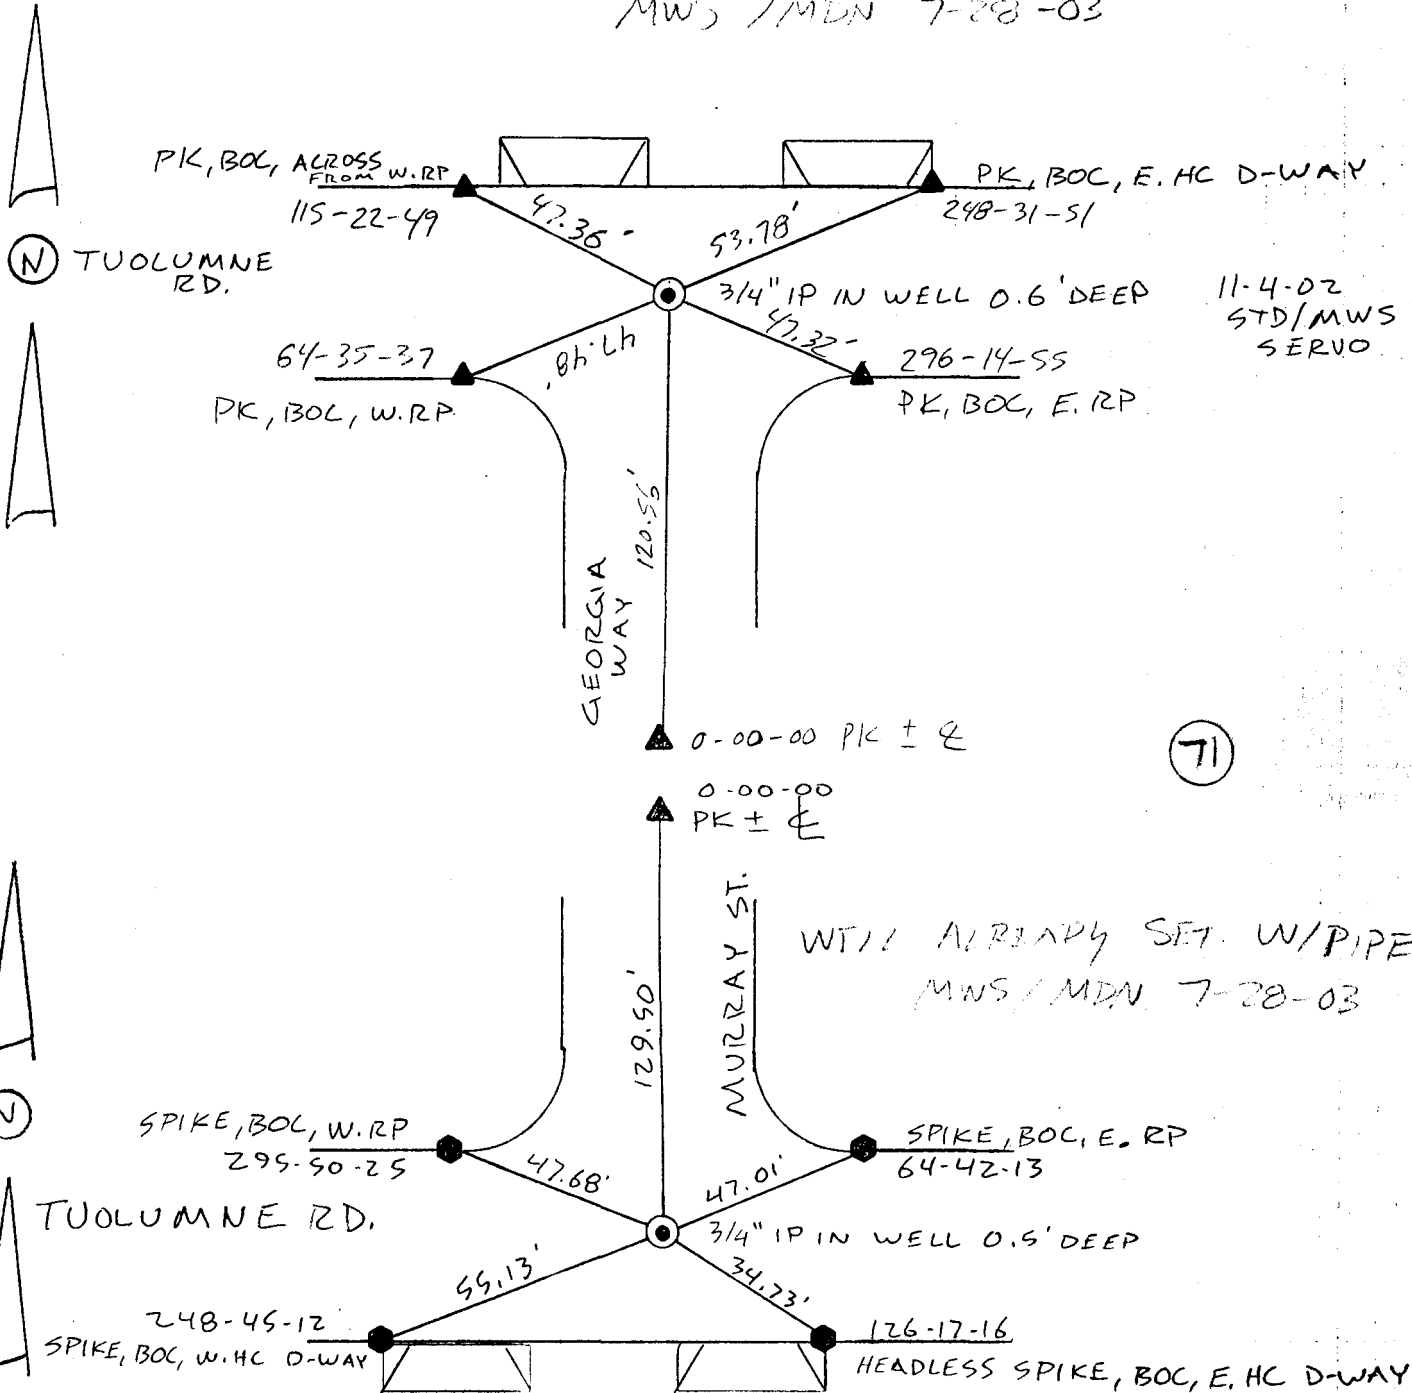 MWS / MDN 7-28-03
PK, BOC, ACROSS
FROM W. RP
115-22-49
47.36'
53.78'
PK, BOC, E. HC D-WAY
248-31-51
N
TUOLUMNE
RD.
3/4" IP IN WELL 0.6' DEEP
11-4-02
STD/MWS
SERVO
64-35-37
PK, BOC, W. RP.
47.48'
47.32'
296-14-55
PK, BOC, E. RP.
120.56'
GEORGIA
WAY
0-00-00 PK ± ℄
71
0-00-00
PK ± ℄
129.50'
MURRAY ST.
ALREADY SET. W/PIPE
MWS / MDN 7-28-03
SPIKE, BOC, W. RP
295-50-25
47.68'
47.01'
SPIKE, BOC, E. RP
64-42-13
TUOLUMNE RD.
3/4" IP IN WELL 0.5' DEEP
55.13'
34.73'
248-45-12
SPIKE, BOC, W. HC D-WAY
126-17-16
HEADLESS SPIKE, BOC, E. HC D-WAY